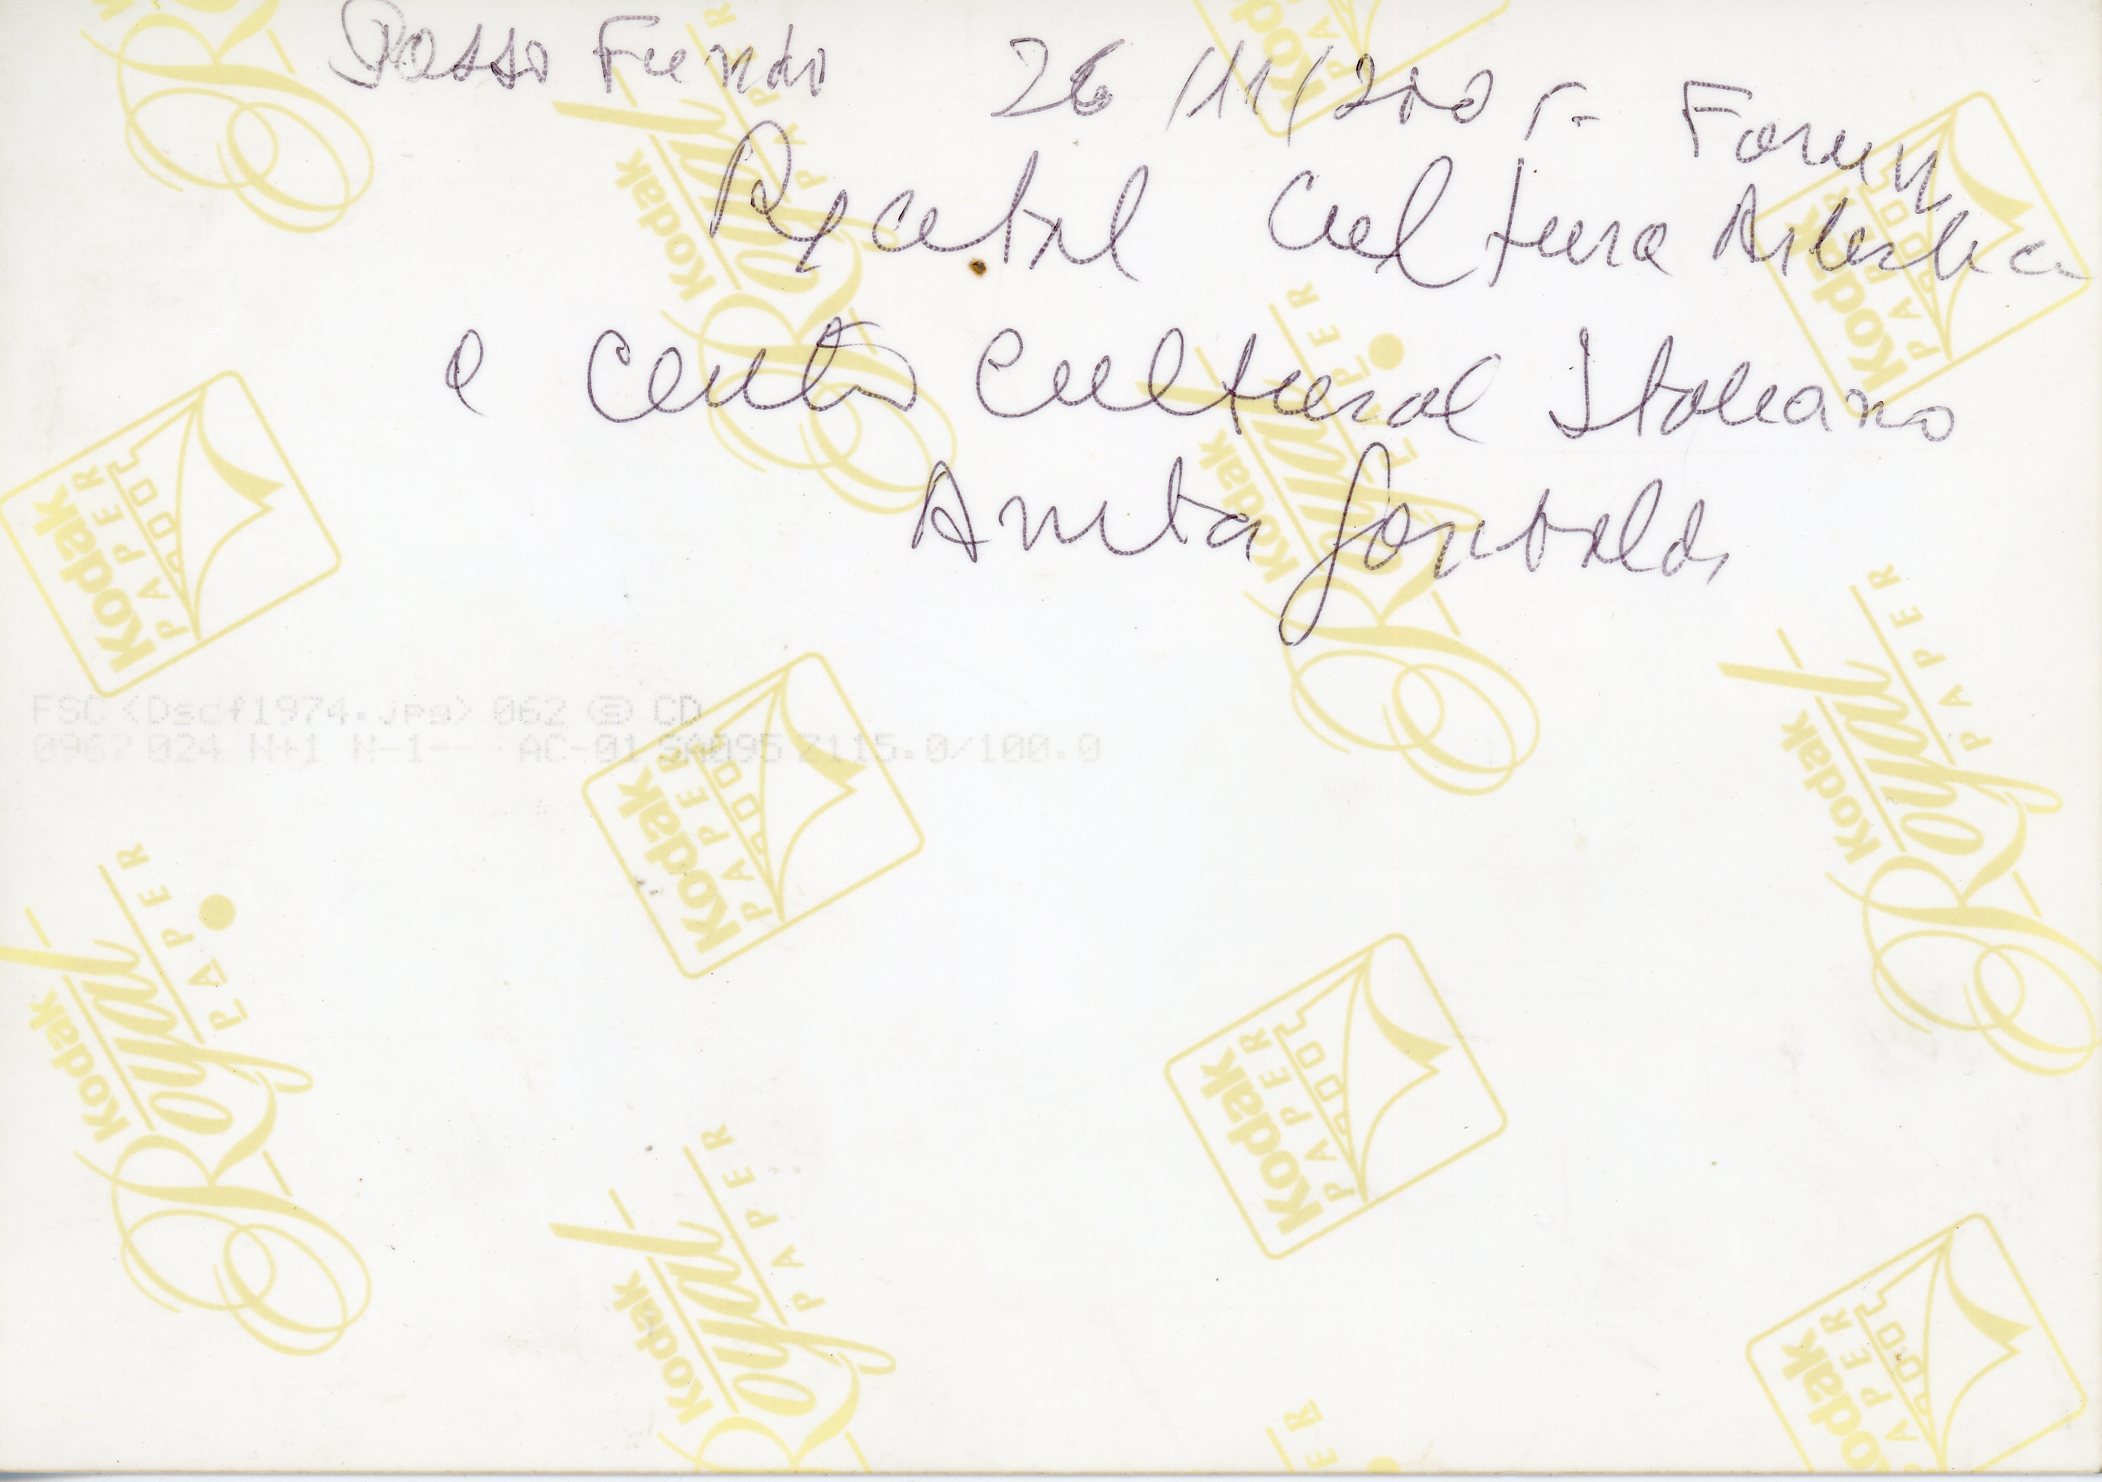 Passo Fundo 26/11/2005- Forum
Recital Cultura Artistica
e Centro Cultural Italiano
Anita Garibaldi
FSC<Dscf1974.jpg> 062 CD
0962 024 N+1 N-1-- AC-01 SA095 Z115.0/100.0
Kodak Royal PAPER
Kodak PAPER PAPEL